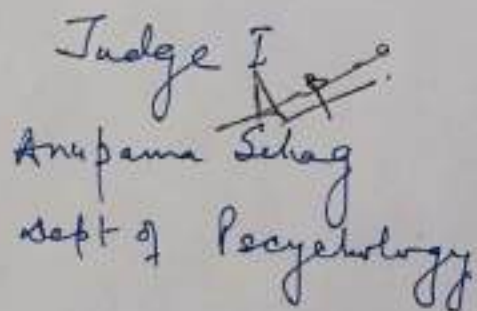 Judge I
Anupama Sehag
Dept of Pscychology